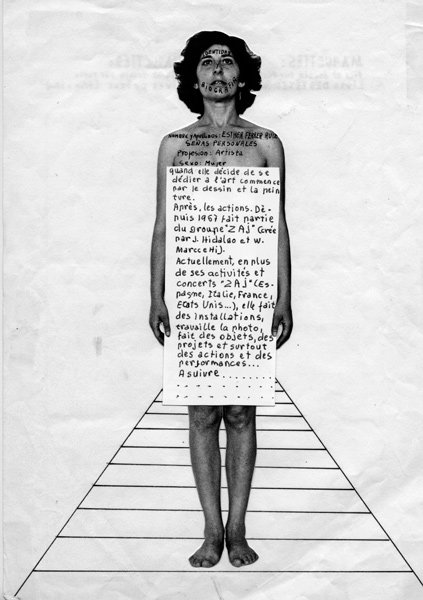 IDENTIDAD
BIOGRAFIA
NOMBRE y Apellidos: ESTHER FERRER RUIZ
SEÑAS PERSONALES
Profesion: Artista
Sexo: Mujer
quand elle décide de se
dédier a l'art commence
par le dessin et la pein
ture.
Après, les actions. De-
nuis 1967 fait partie
du Groupe "ZAJ" (crée
par J. Hidalgo et W.
Marcceñi).
Actuellement, en plus
de ses activités et
concerts "ZAJ" (Es-
pagne, Italie, France,
Etats Unis...), elle fait
des installations,
travaille la photo,
fait des objets, des
projets et surtout
des actions et des
performances...
A suivre